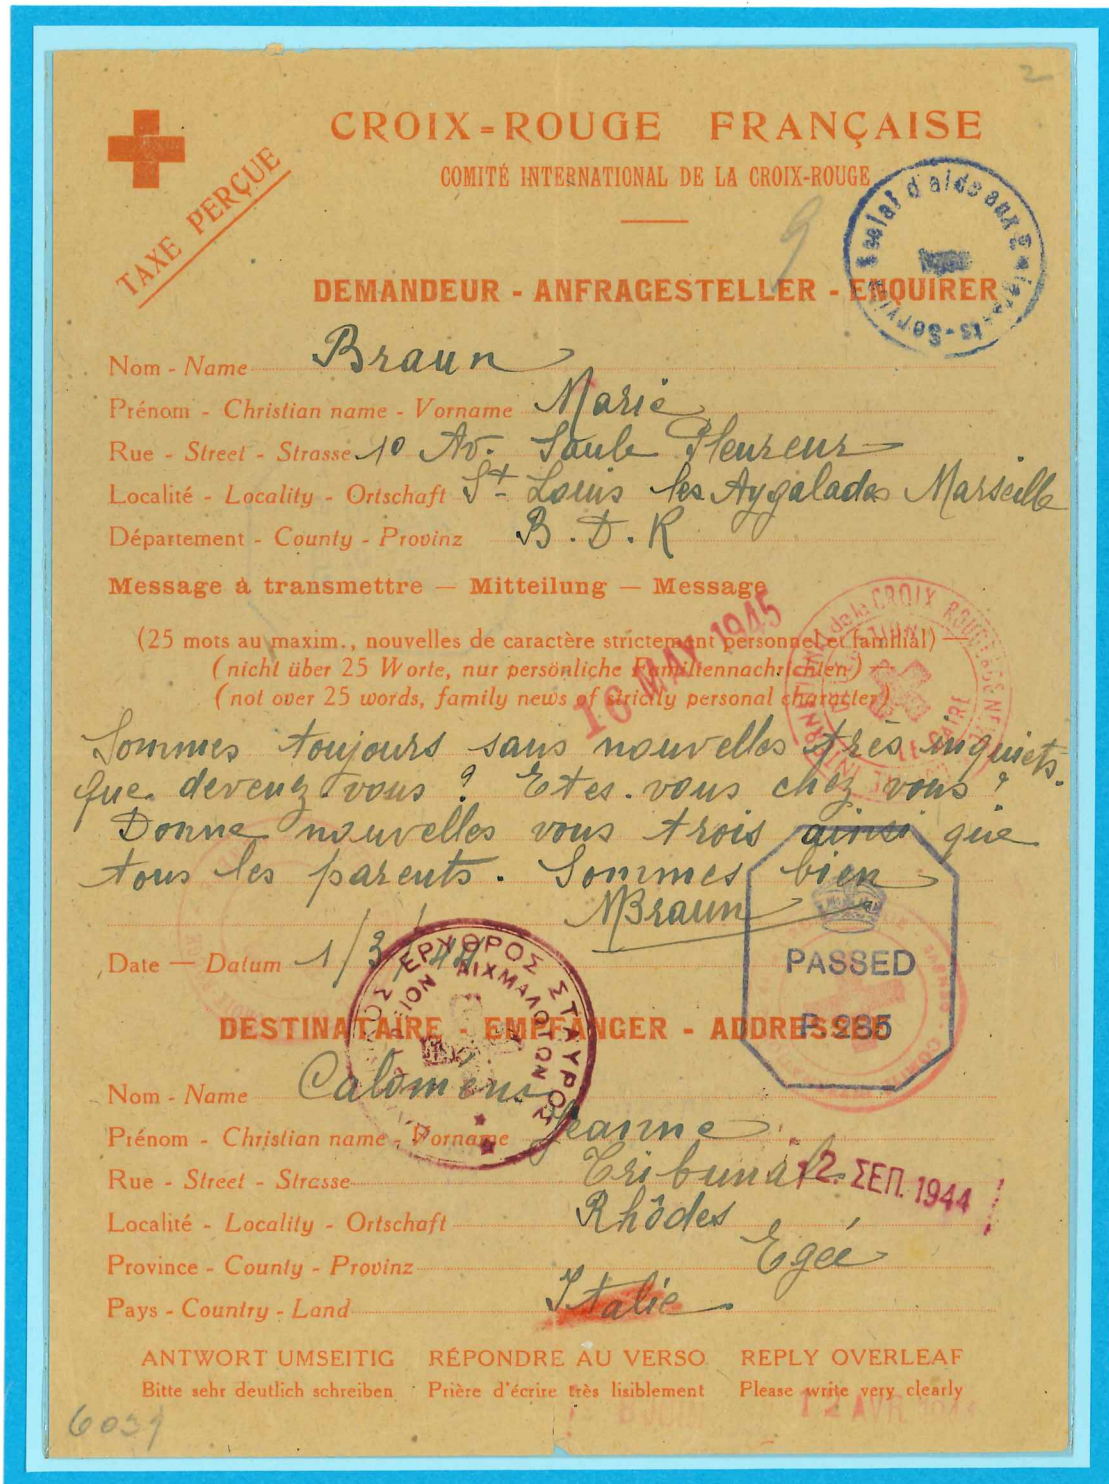 2
CROIX-ROUGE FRANÇAISE
COMITÉ INTERNATIONAL DE LA CROIX-ROUGE
TAXE PERÇUE
9
d'aide aux
DEMANDEUR - ANFRAGESTELLER - ENQUIRER
Nom - Name Braun
Prénom - Christian name - Vorname Marie
Rue - Street - Strasse 10 Av. Saule Pleureur
Localité - Locality - Ortschaft St Louis les Aygalades Marseille
Département - County - Provinz B.D.R
Message à transmettre — Mitteilung — Message
(25 mots au maxim., nouvelles de caractère strictement personnel et familial) —
(nicht über 25 Worte, nur persönliche Familiennachrichten) —
(not over 25 words, family news of strictly personal character)
16 MAY 1945
de la CROIX ROUGE
LE CAIRE
Sommes toujours sans nouvelles très inquiets.
que devenez-vous ? Etes-vous chez vous ?
Donne nouvelles vous trois ainsi que
tous les parents. Sommes bien
MBraun
Date — Datum 1/3/44
PASSED
P 285
ΕΡΥΘΡΟΣ ΣΤΑΥΡΟΣ
ΑΙΧΜΑΛΩΤΩΝ
DESTINATAIRE - EMPFÄNGER - ADDRESSEE
Nom - Name
Prénom - Christian name - Vorname Jeanne
Rue - Street - Strasse Tribunal
12. ΣΕΠ. 1944
Localité - Locality - Ortschaft Rhôdes
Province - County - Provinz Egée
Pays - Country - Land Italie
ANTWORT UMSEITIG RÉPONDRE AU VERSO REPLY OVERLEAF
Bitte sehr deutlich schreiben Prière d'écrire très lisiblement Please write very clearly
12 AVR. 1944
6039